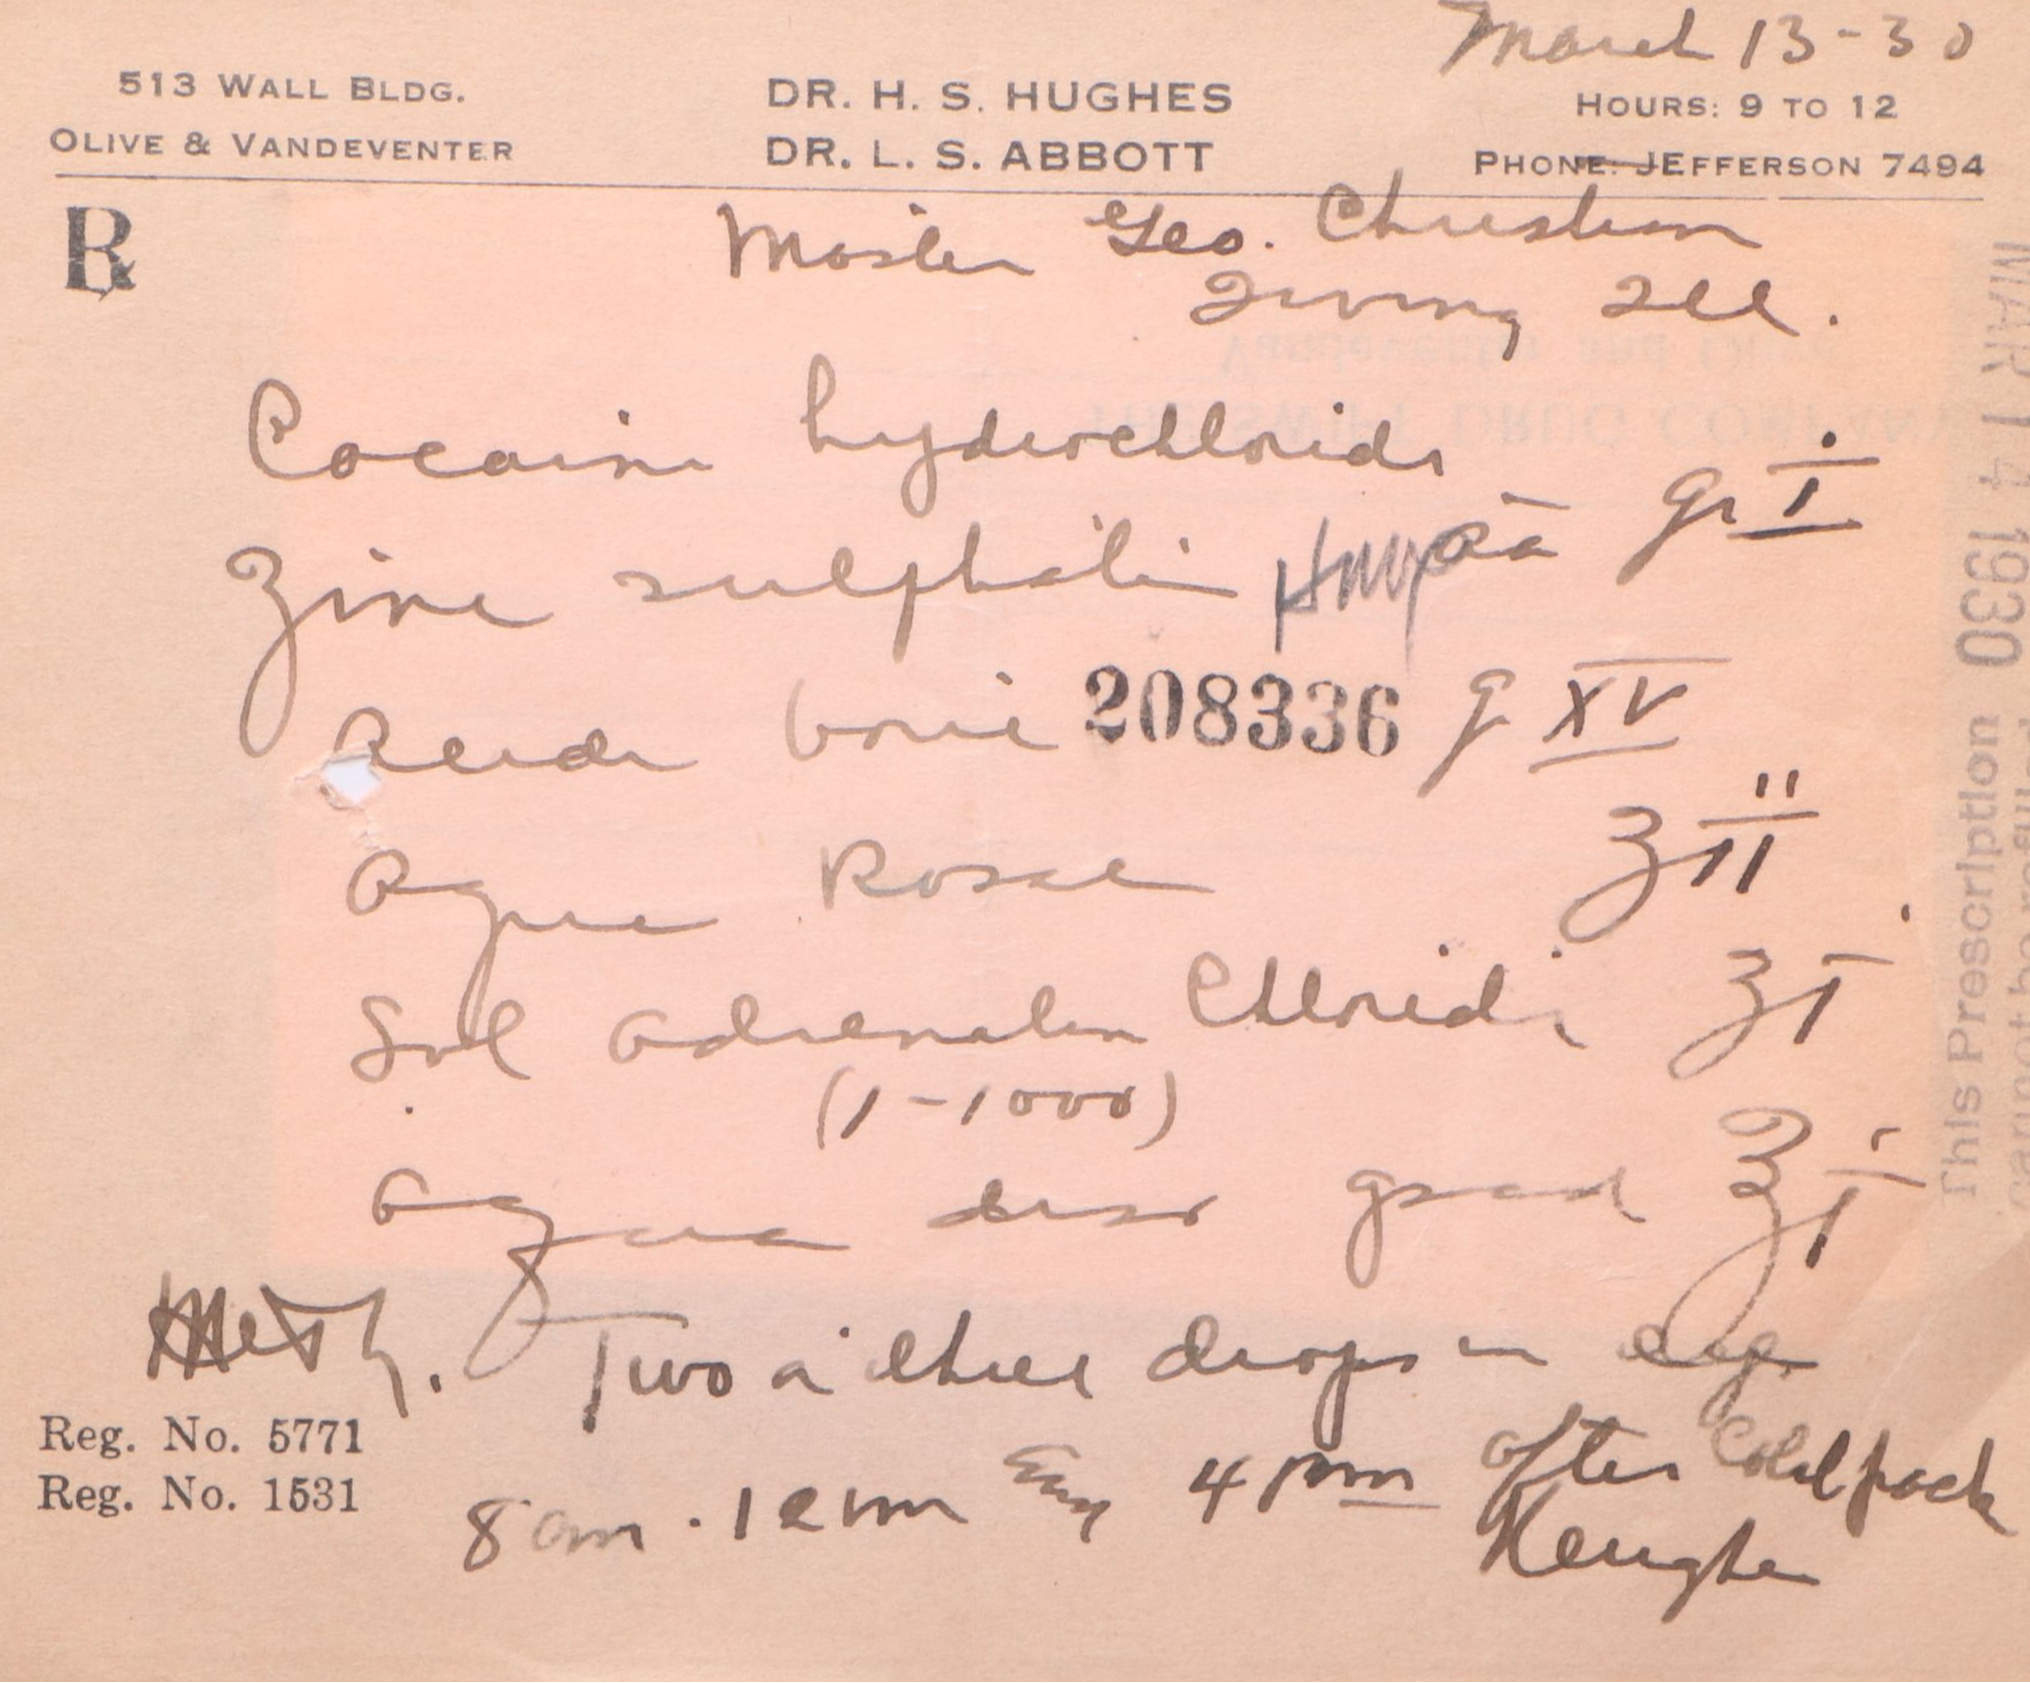 March 13-30
513 WALL BLDG.
OLIVE & VANDEVENTER
DR. H. S. HUGHES
DR. L. S. ABBOTT
HOURS: 9 TO 12
PHONE: JEFFERSON 7494
℞
Master Geo. Christian
Irving Ill.
Cocain hydrochlorid
Zinc sulphati āā gr i
Acidi boric gr XV
208336
Aqua Rosae ʒ ii
Sol adrenalin Chloridi ʒ i
(1-1000)
Aqua dist ʒ i
Two or three drops in eye
8 am . 12 m 4 pm after Cold pack
Hughes
Reg. No. 5771
Reg. No. 1531
MAR 14 1930
This Prescription
cannot be refilled
THE SWIFT DRUG COMPANY